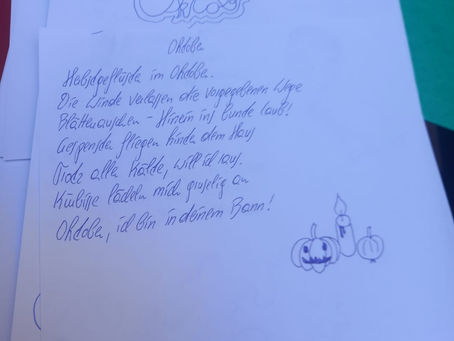 Oktober
Herbstgeflüster im Oktober.
Die Winde verlassen die vorgegebenen Wege
Blätterrauschen - Hinein ins bunte Laub!
Gespenster fliegen hinter dem Haus
Trotz aller Kälte, will ich raus.
Kürbisse lächeln mich gruselig an
Oktober, ich bin in deinem Bann!